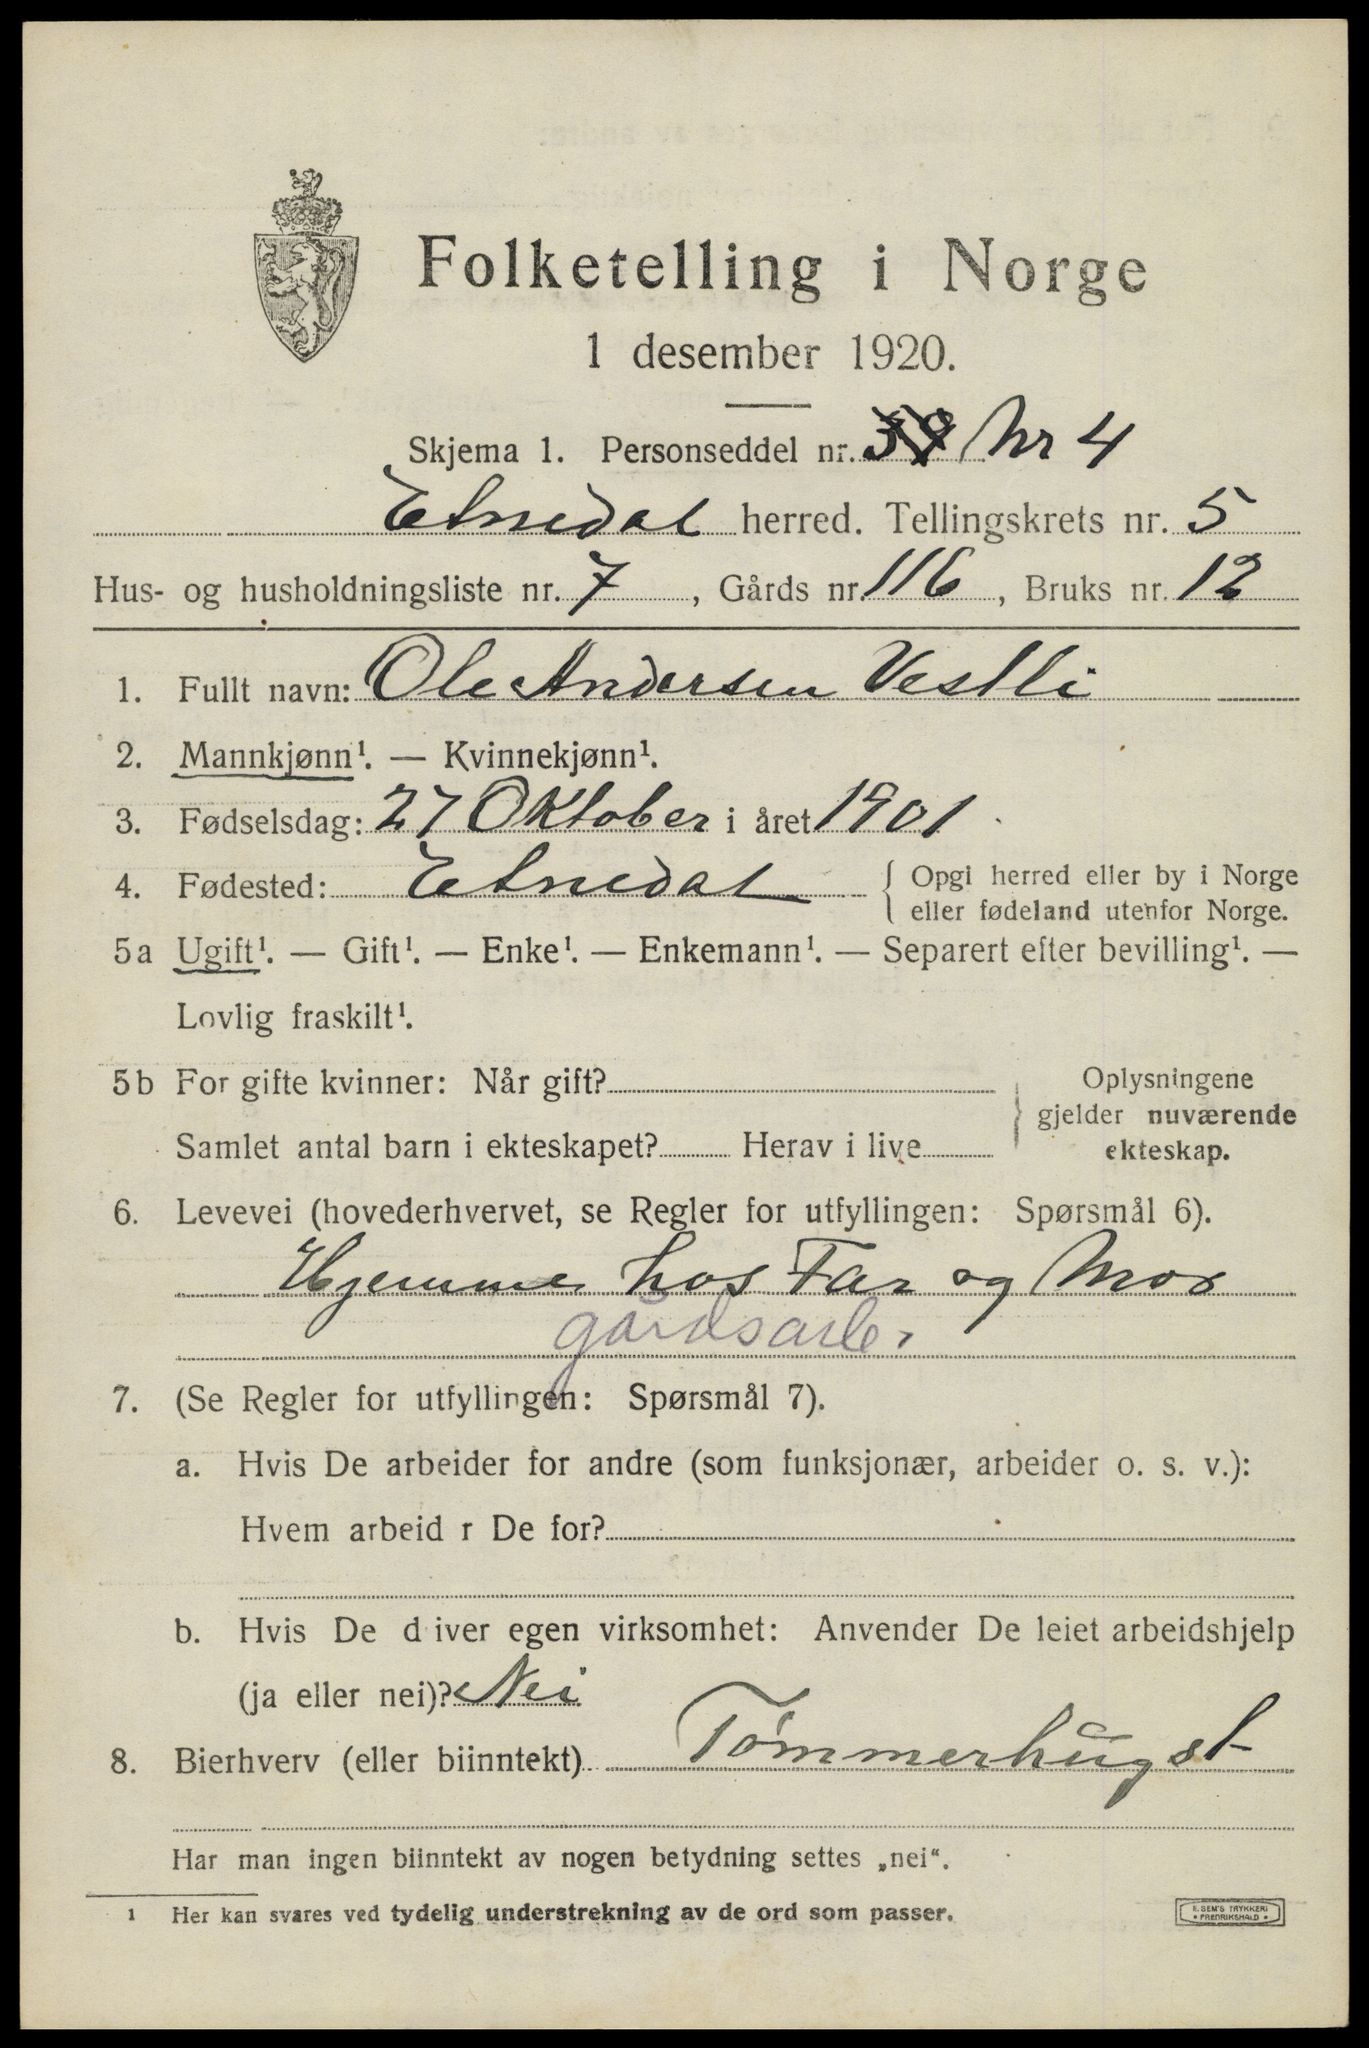 Folketelling i Norge
1 desember 1920.
Skjema 1. Personseddel nr. 39 Nr 4
Etnedal herred. Tellingskrets nr. 5
Hus- og husholdningsliste nr. 7, Gårds nr. 116, Bruks nr. 12
1. Fullt navn: Ole Andersen Vestli
2. Mannkjønn¹. — Kvinnekjønn¹.
3. Fødselsdag: 27 Oktober i året 1901
4. Fødested: Etnedal { Opgi herred eller by i Norge
eller fødeland utenfor Norge.
5a Ugift¹. — Gift¹. — Enke¹. — Enkemann¹. — Separert efter bevilling¹. —
Lovlig fraskilt¹.
5b For gifte kvinner: Når gift?
Samlet antal barn i ekteskapet? Herav i live
} Oplysningene
gjelder nuværende
ekteskap.
6. Levevei (hovederhvervet, se Regler for utfyllingen: Spørsmål 6).
Hjemme hos Far og Mor
gårdsarb.
7. (Se Regler for utfyllingen: Spørsmål 7).
a. Hvis De arbeider for andre (som funksjonær, arbeider o. s. v.):
Hvem arbeid r De for?
b. Hvis De d iver egen virksomhet: Anvender De leiet arbeidshjelp
(ja eller nei)? Nei
8. Bierhverv (eller biinntekt) Tømmerhugst
Har man ingen biinntekt av nogen betydning settes „nei“.
¹ Her kan svares ved tydelig understrekning av de ord som passer.
E. SEM'S TRYKKERI
FREDRIKSHALD